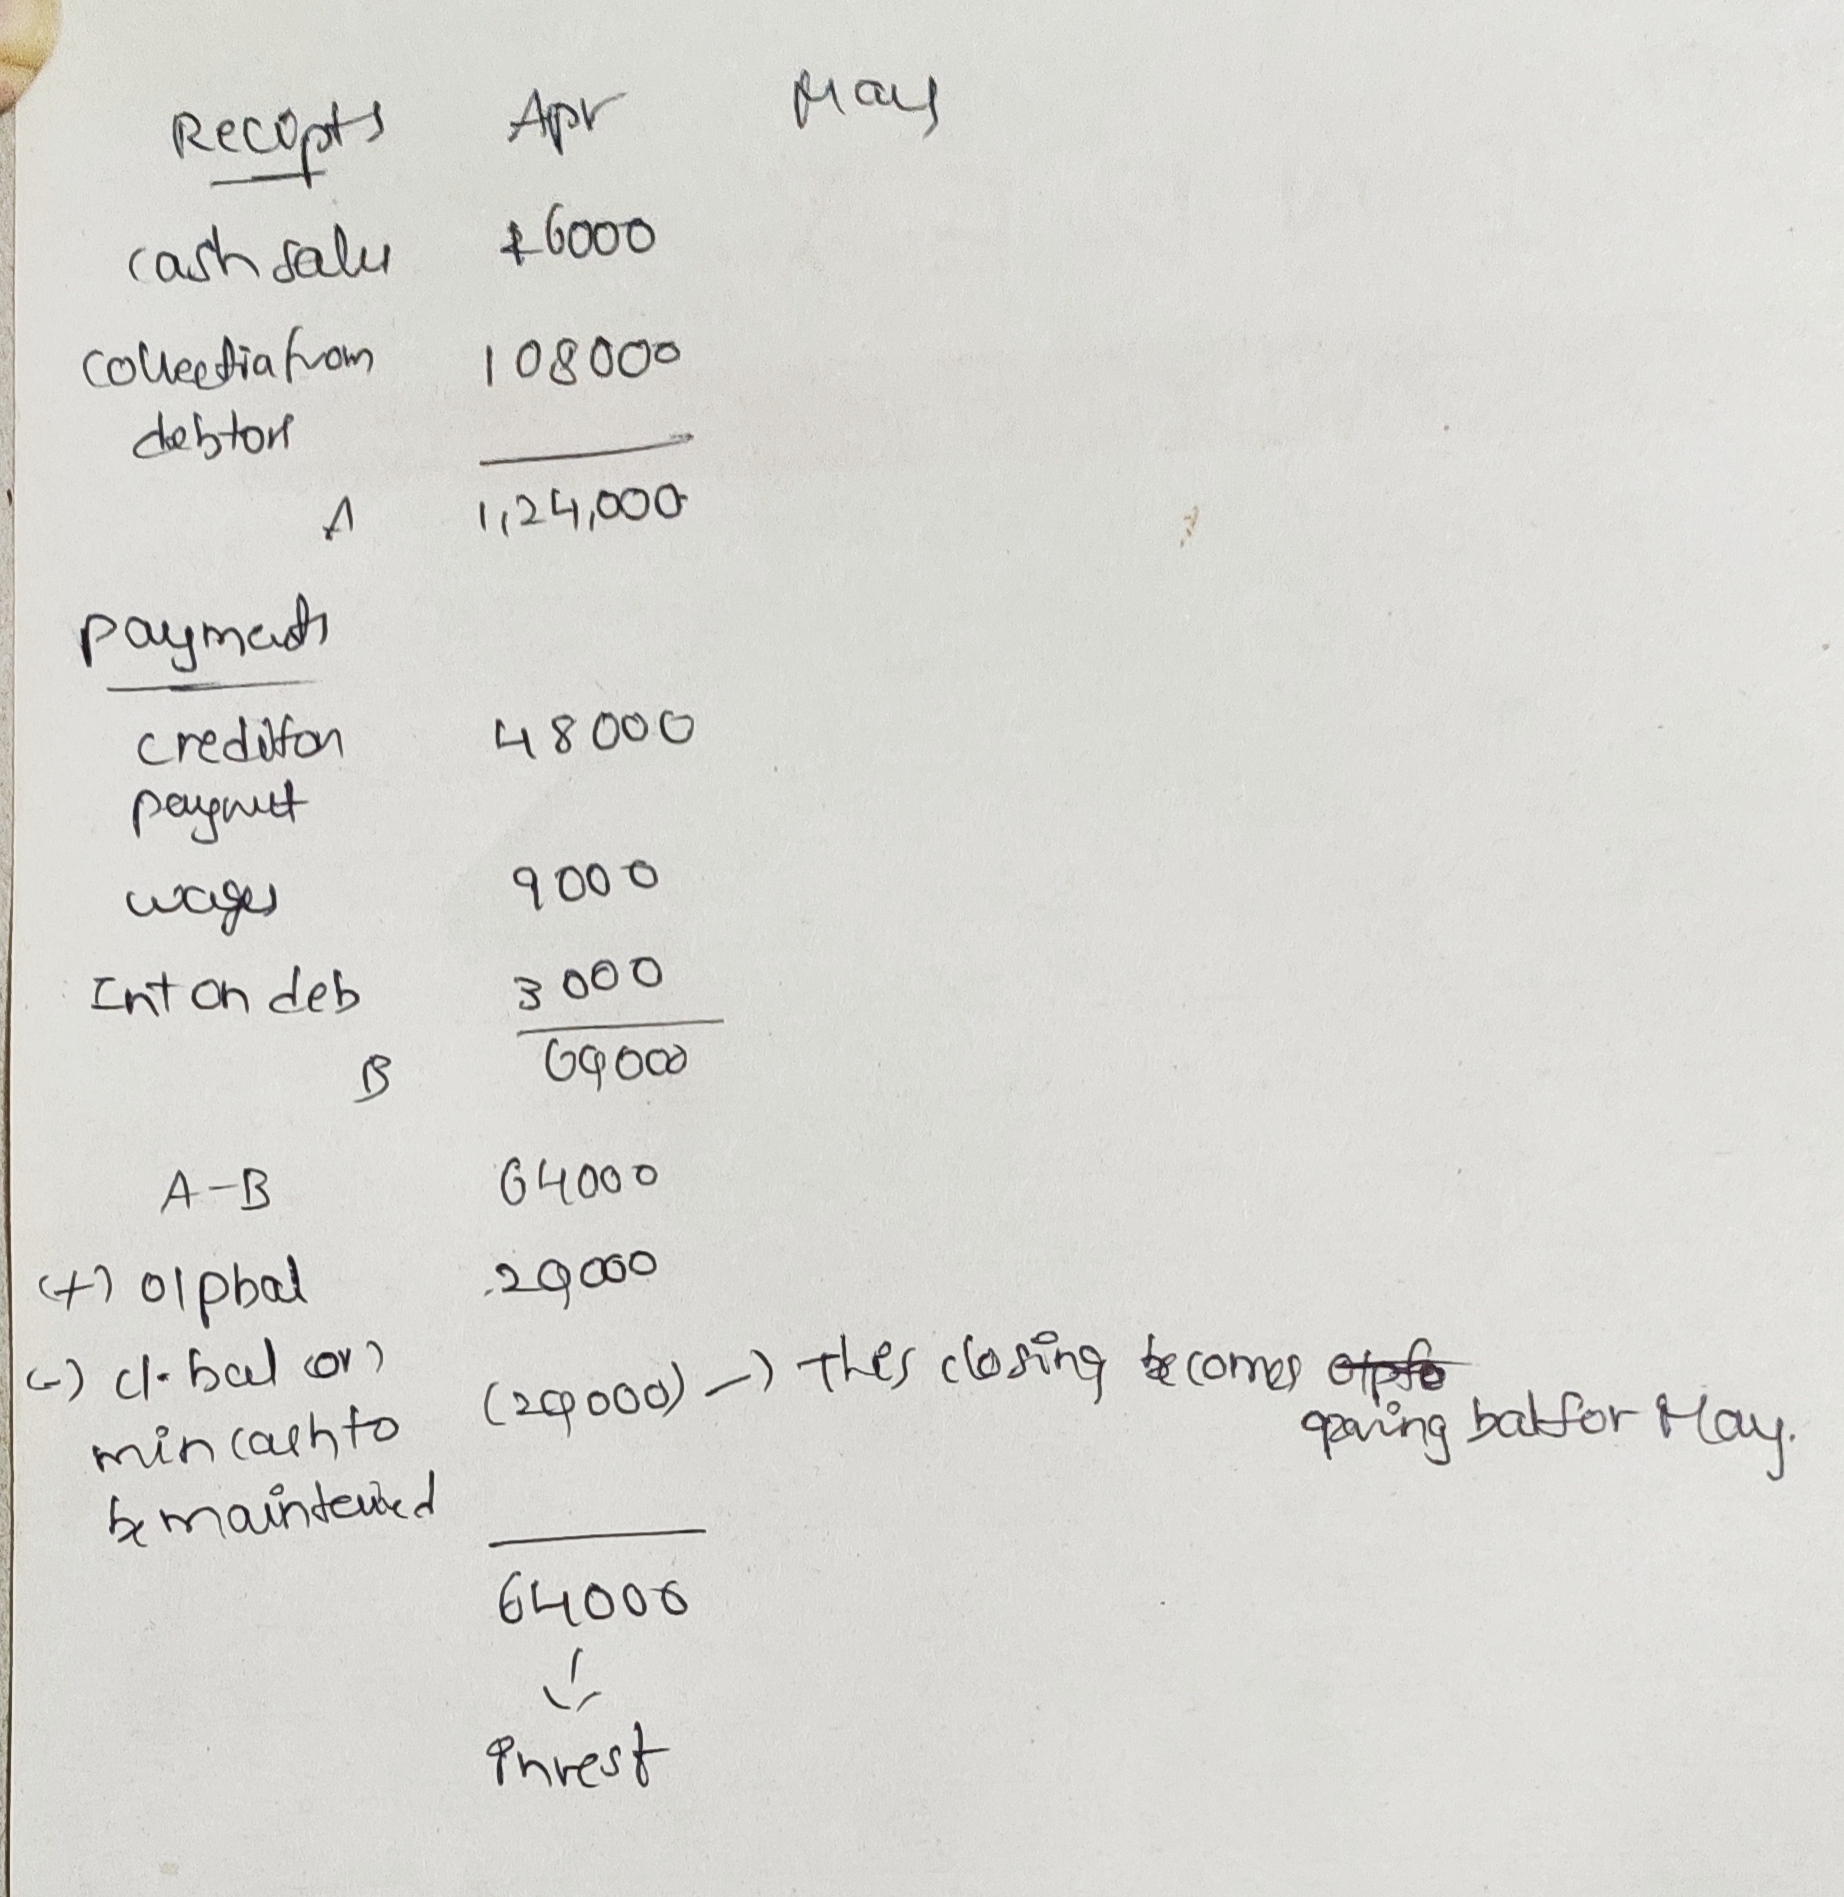 Recipts Apr May
cash sales 16000
collection from 108000
debtors
A 1,24,000
payments
creditors 48000
payment
wages 9000
Int on deb 3000
B 60000
A-B 64000
(+) o/p bal 20000
(-) cl. bal (or) (20000) → This closing becomes
min cash to opening bal for May.
be maintained
64000
↓
invest